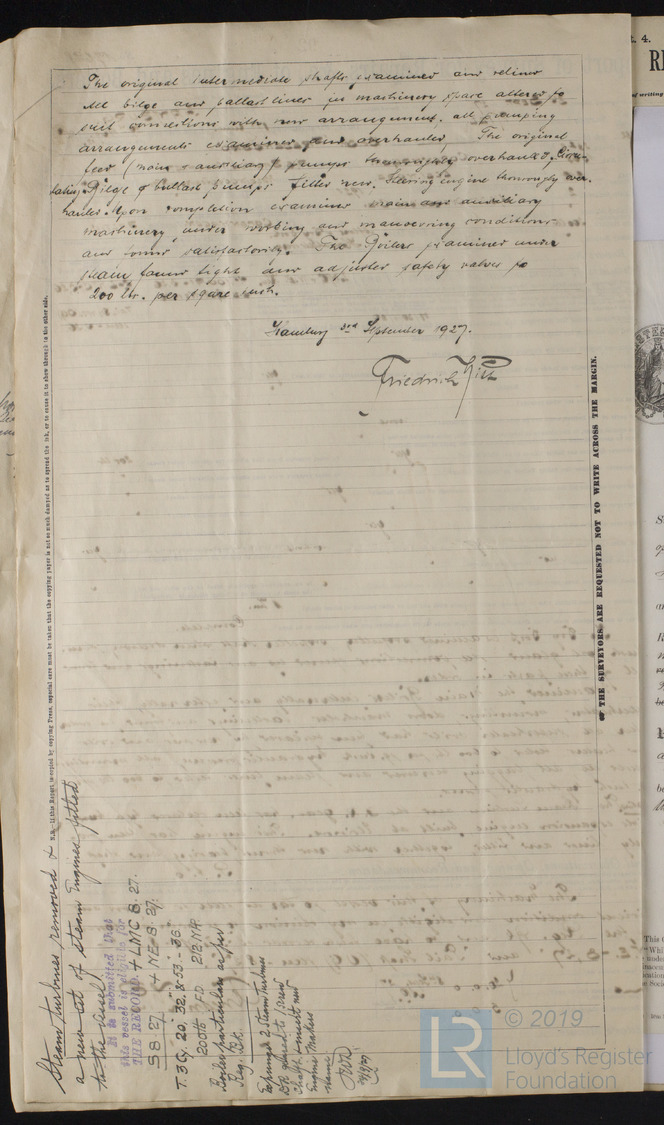 The original intermediate shafts examined and refitted
All bilge and ballast lines in machinery space altered to
suit connections with new arrangement. all pumping
arrangements examined and overhauled, The original
feed (main & auxiliary) pumps thoroughly overhauled. Circu-
lating, Bilge & ballast pumps fitted new. Steering engine thoroughly over-
hauled. Upon completion examined main and auxiliary
machinery under working and manoevring conditions
and found satisfactorily. The Boilers examined under
steam found tight and adjusted safety valves to
200 lbs. per sqare inch.
Hamburg 3rd September 1927.
Friedrich
N.B.—If this Report is copied by copying Press, especial care must be taken that the copying paper is not so much damped as to spread the ink, or to cause it to show through to the other side.
THE SURVEYORS ARE REQUESTED NOT TO WRITE ACROSS THE MARGIN.
Steam turbines removed &
a new set of steam Engines fitted
to the vessel
It is submitted that
this vessel is eligible for
THE RECORD + LMC 8.27.
SB 8.27 + NE 8.27.
T.3Cy. 20, 32 & 53 - 36
200 lb FD 212 NHP
Boiler particulars as per
Reg. Bk.
Expunge 2 Steam turbines
DR geared to screw
shaft & insert new
Engine Makers
name
© 2019
LR
Lloyd's Register
Foundation